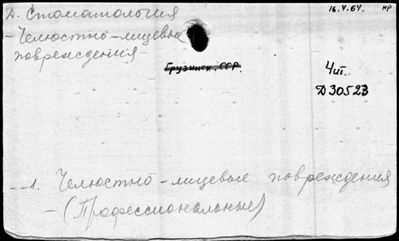 Д. Стоматология
16.V.64. МР
- Челюстно-лицевые
повреждения
Грузинск. ССР.
Чит.
Д30523
1. Челюстно-лицевые повреждения
- (Профессиональные)